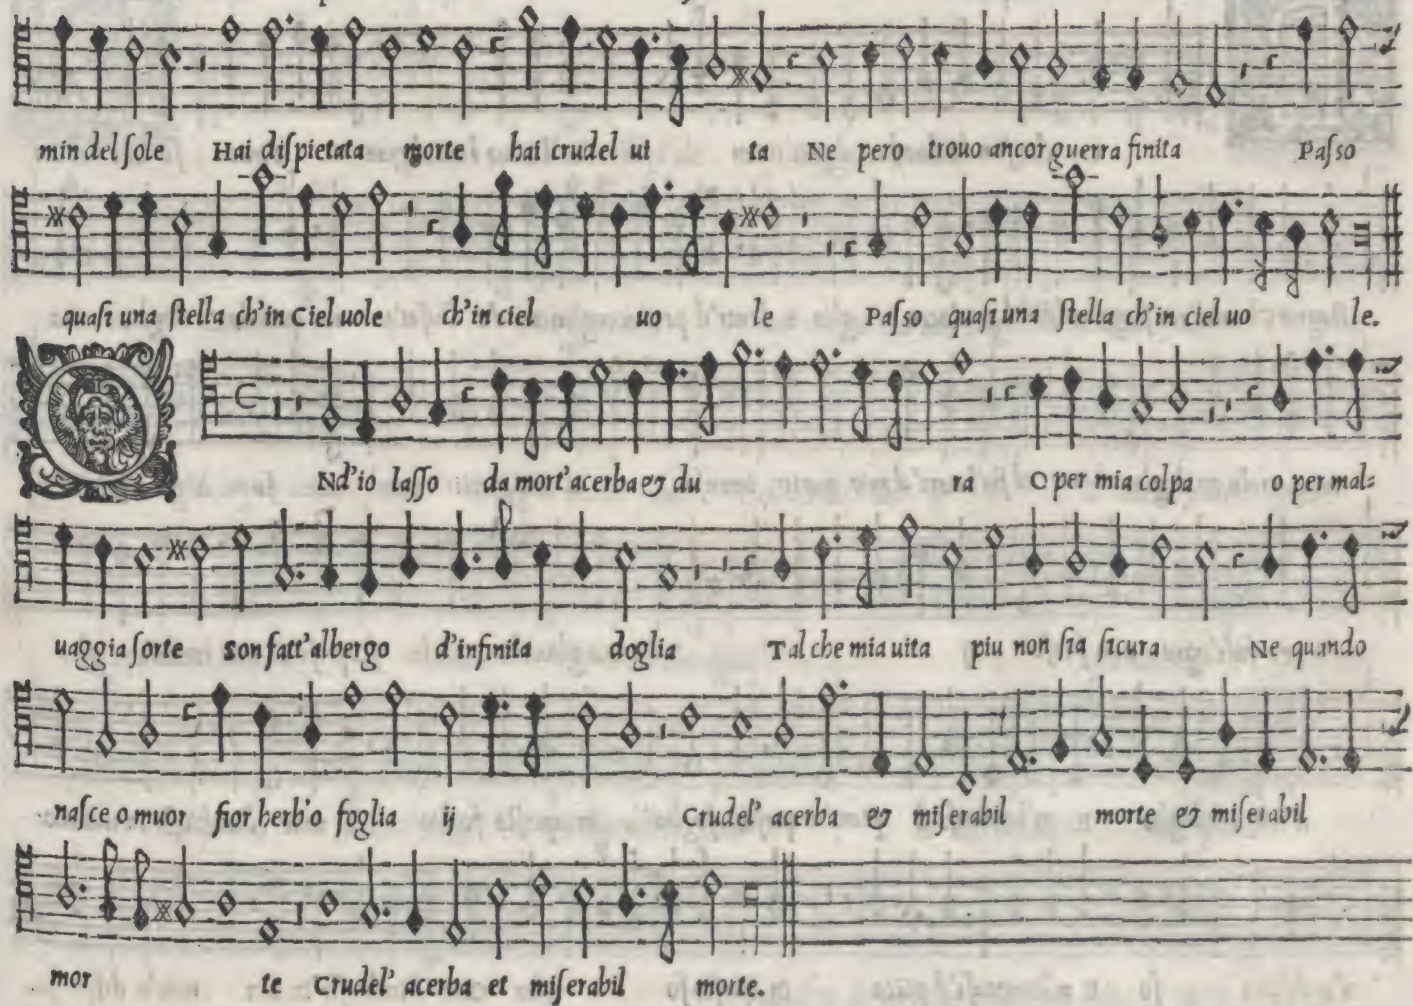 min del ſole Hai diſpietata morte hai crudel ui ta Ne pero trouo ancor guerra finita Paſso
quaſi una ſtella ch'in Ciel uole ch'in ciel uo le Paſso quaſi una ſtella ch'in ciel uo le.
O Nd'io laſſo da mort'acerba & du ra O per mia colpa o per mal=
uaggia ſorte Son fatt'albergo d'infinita doglia Tal che mia uita piu non ſia ſicura Ne quando
naſce o muor fior herb'o foglia ij Crudel' acerba & miſerabil morte & miſerabil
mor te Crudel' acerba et miſerabil morte.